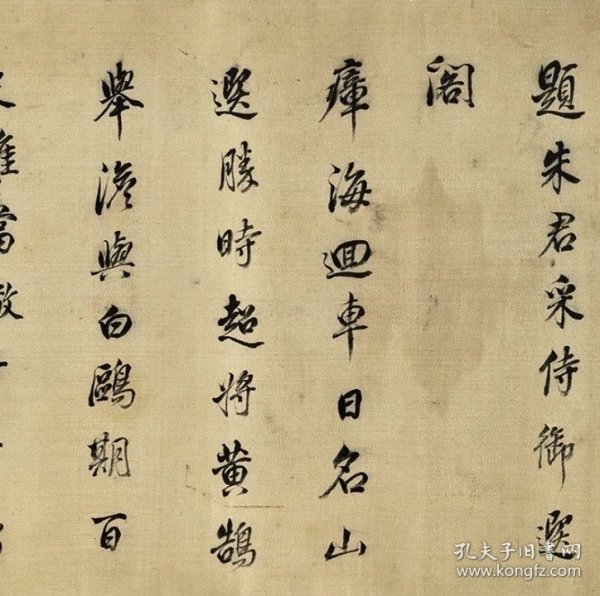 題朱君采侍御選
閣
瘴海迴車日名山
選勝時超將黄鵠
舉澹與白鷗期百
當
孔夫子旧书网
www.kongfz.com